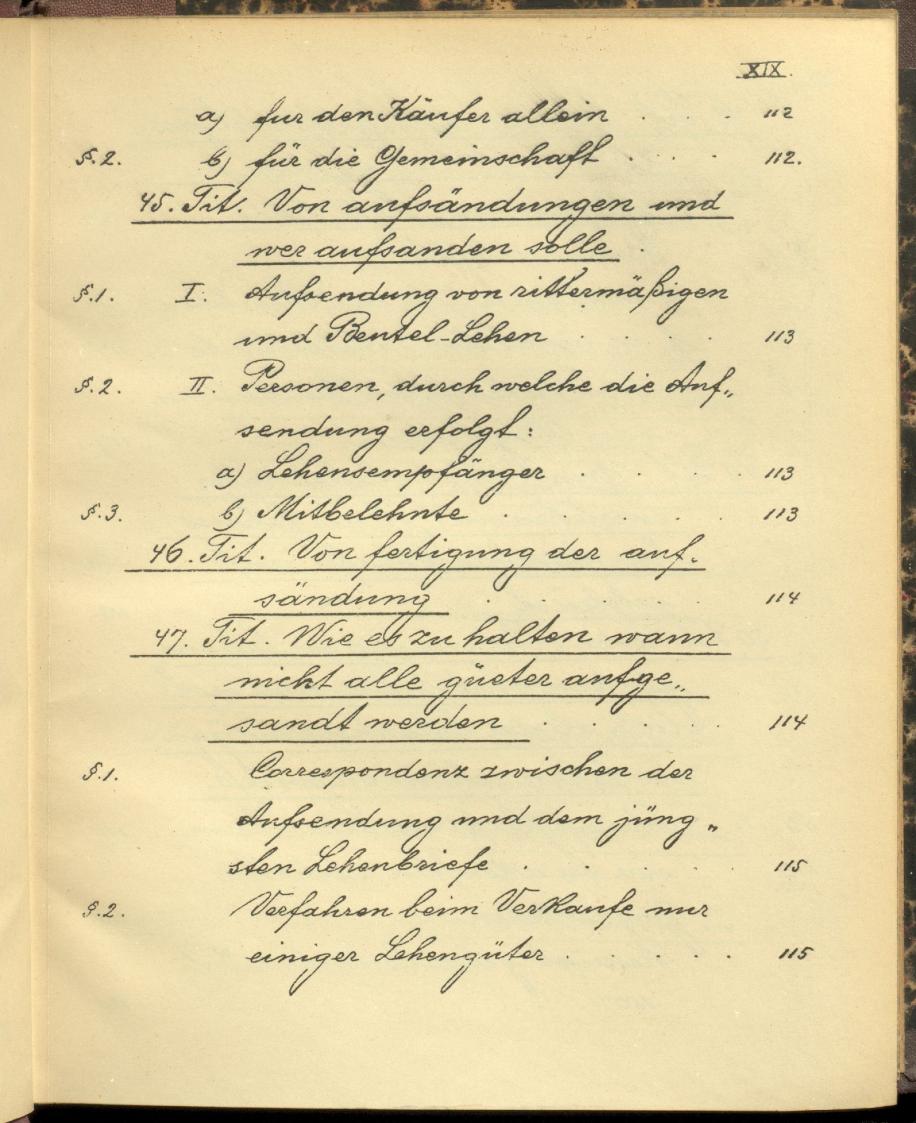 XIX.
a) fur den Käufer allein . . . 112
§.2. b) für die Gemeinschaft . . . . 112.
45. Tit. Von aufsändungen und
wer aufsanden solle .
§.1. I. Aufsendung von rittermäßigen
und Beutel-Lehen . . . . . 113
§.2. II. Personen, durch welche die Auf„
sendung erfolgt:
a) Lehensempfänger . . . . . 113
§.3. b) Mitbelehnte . . . . . 113
46. Tit. Von fertigung der auf-
sändung . . . . . 114
47. Tit. Wie es zu halten wann
nicht alle güeter aufge„
sandt werden . . . . . 114
§.1. Correspondenz zwischen der
Aufsendung und dem jüng„
sten Lehenbriefe . . . . . 115
§.2. Verfahren beim Verkaufe nur
einiger Lehengüter . . . . . 115